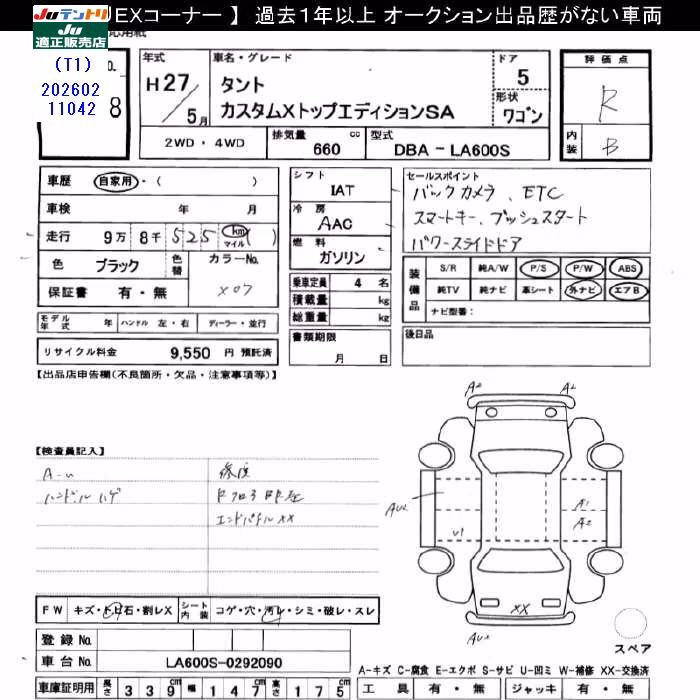 EXコーナー 】 過去１年以上 オークション出品歴がない車両
Juテントリ
Ju
適正販売店
(T1)
202602
11042
8
年式
H27/5月
車名・グレード
タント
カスタムXトップエディションSA
ドア
5
形状
ワゴン
評価点
R
内装
B
2WD ・ 4WD
排気量
660 cc
型式
DBA － LA600S
車歴 自家用・( )
車検 年 月
走行 9万 8千 525 km マイル ( )
色 ブラック 色替 カラーNo.
X07
保証書 有・無
シフト
IAT
冷房
AAC
燃料
ガソリン
乗車定員 4 名
積載量 kg
総重量 kg
セールスポイント
バックカメラ、ETC
スマートキー、プッシュスタート
パワースライドドア
装備品
S/R 純A/W P/S P/W ABS
純TV 純ナビ 革シート 外ナビ エアB
ナビ型番：
モデル年式 年 ハンドル 左・右 ディーラー・並行
書類期限
月 日
後日品
リサイクル料金 9,550 円 預託済
【出品店申告欄(不良箇所・欠品・注意事項等)】
【検査員記入】
A-u
ハンドルハゲ
修復
エンドパネルXX
A2
A2
AU2
A1
A2
U1
XX
AU2
スペア
FW キズ・トビ石・割レX
シート内装 コゲ・穴・汚レ・シミ・破レ・スレ
登録 No.
車台 No. LA600S-0292090
A-キズ C-腐食 E-エクボ S-サビ U-凹ミ W-補修 XX-交換済
車庫証明用 長さ 339cm 幅 147cm 高さ 175cm
工具 有・無 ジャッキ 有・無